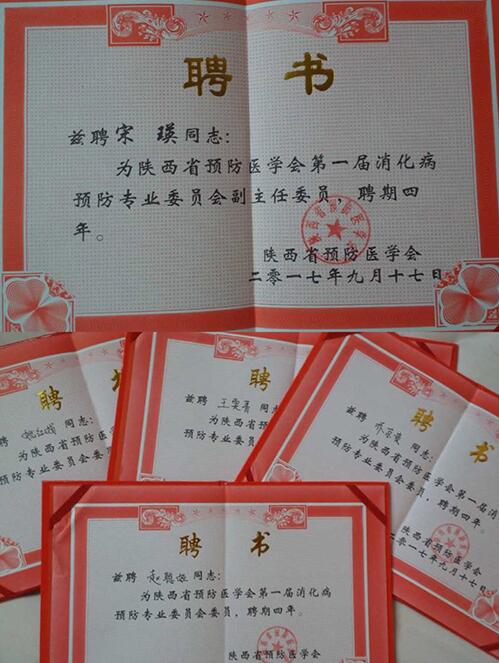 聘 书
兹聘 宋 瑛 同志：
为陕西省预防医学会第一届消化病
预防专业委员会副主任委员，聘期四
年。
陕西省预防医学会
二零一七年九月十七日
聘
同志：
为陕西省预防
预防专业委员会委
聘
兹聘 王雯菁 同
为陕西省预防
防专业委员会
聘 书
兹聘 同志：
为陕西省预防医学会第一届消
预防专业委员会委员，聘期四年。
陕西省预防医学会
二零一七年九月十七日
聘 书
兹聘 同志：
为陕西省预防医学会第一届消化病
预防专业委员会委员，聘期四年。
陕西省预防医学会